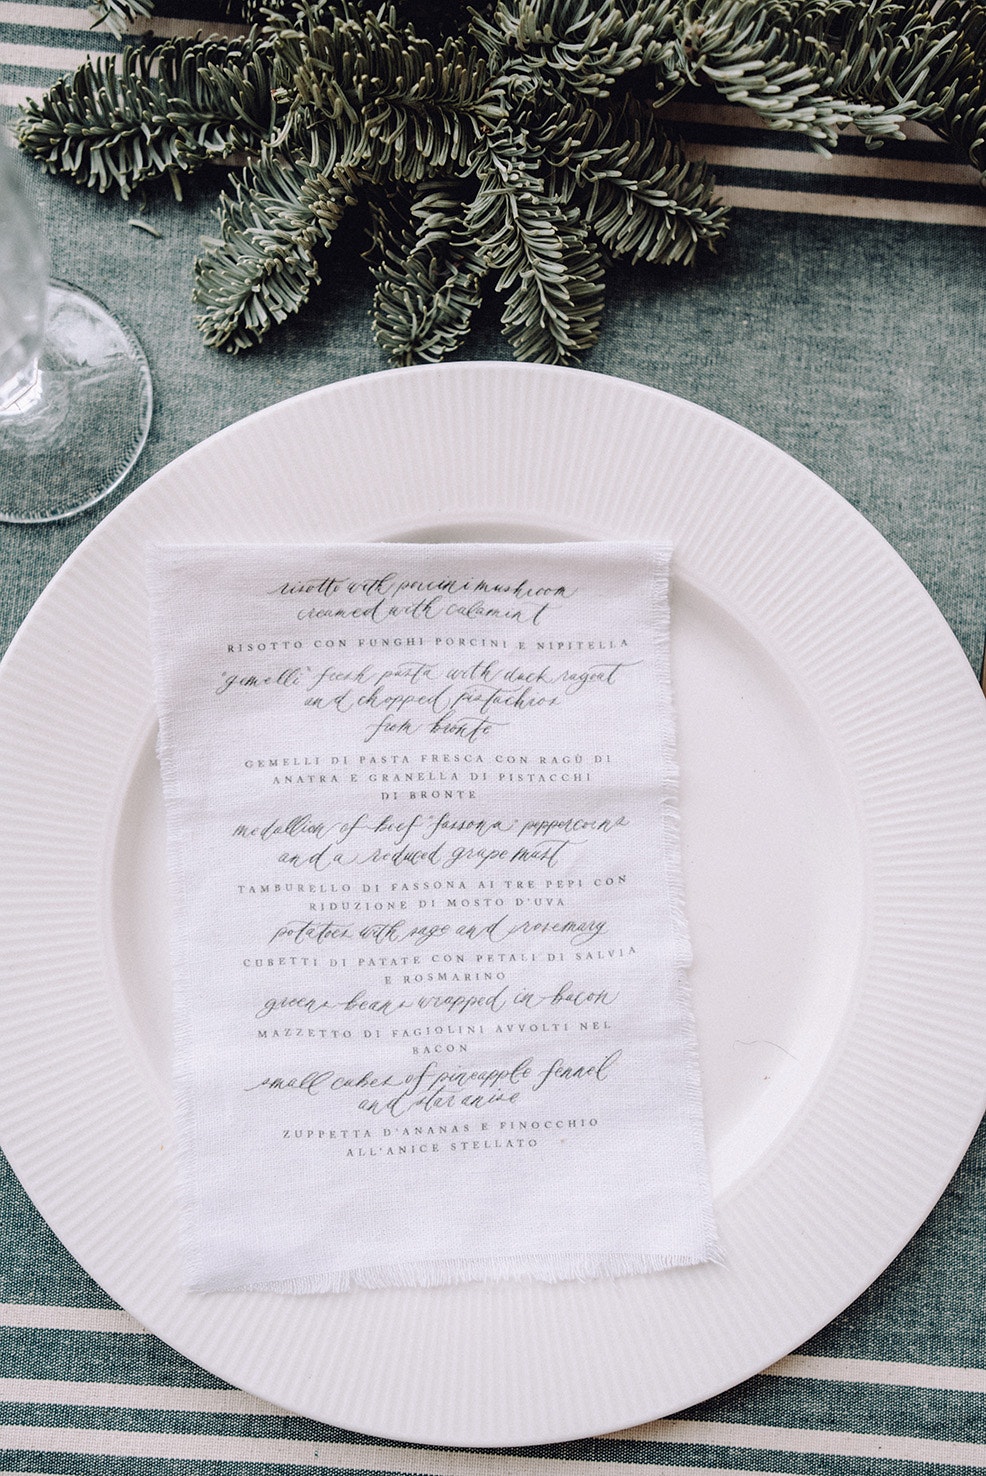 risotto with porcini mushroom
creamed with calamint
RISOTTO CON FUNGHI PORCINI E NIPITELLA
"gemelli" fresh pasta with duck ragout
and chopped pistachios
from bronte
GEMELLI DI PASTA FRESCA CON RAGÙ DI
ANATRA E GRANELLA DI PISTACCHI
DI BRONTE
medallion of beef "fassona" peppercorns
and a reduced grape must
TAMBURELLO DI FASSONA AI TRE PEPI CON
RIDUZIONE DI MOSTO D'UVA
potatoes with sage and rosemary
CUBETTI DI PATATE CON PETALI DI SALVIA
E ROSMARINO
greens beans wrapped in bacon
MAZZETTO DI FAGIOLINI AVVOLTI NEL
BACON
small cubes of pineapple fennel
and star anise
ZUPPETTA D'ANANAS E FINOCCHIO
ALL'ANICE STELLATO